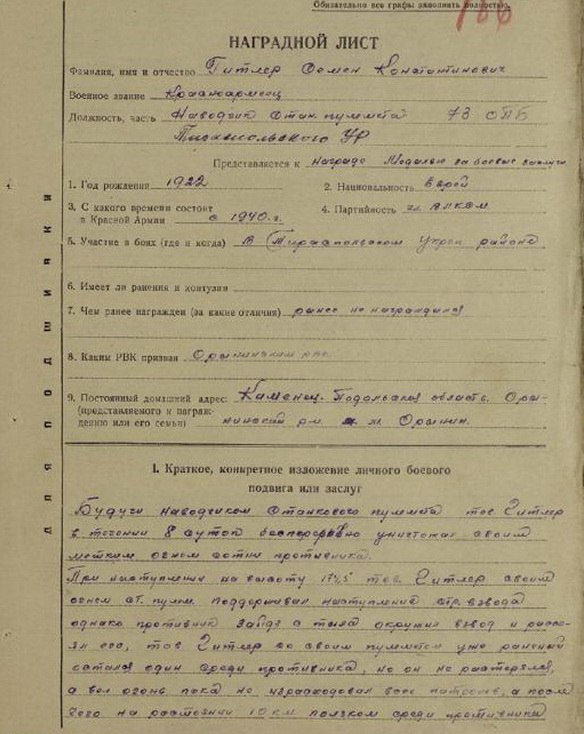 Обязательно все графы заполнить полностью.
186
НАГРАДНОЙ ЛИСТ
Фамилия, имя и отчество Гитлер Семен Константинович
Военное звание Красноармеец
Должность, часть Наводчик стан. пулемета 73 ОПБ
Тираспольского УР
Представляется к награде Медалью за боевые заслуги
1. Год рождения 1922 2. Национальность Еврей
3. С какого времени состоит 4. Партийность чл. ВЛКСМ
в Красной Армии с 1940 г.
5. Участие в боях (где и когда) в Тираспольском Укреп районе
6. Имеет ли ранения и контузии
7. Чем ранее награжден (за какие отличия) ранее не награждался
8. Каким РВК призван Орынинским рвк
9. Постоянный домашний адрес: Каменец-Подольская область. Оры-
(представляемого к награж-
дению или его семьи) нинский р-н м. Орынин.
1. Краткое, конкретное изложение личного боевого
подвига или заслуг
Будучи наводчиком станкового пулемета тов. Гитлер
в течении 8 суток беспрерывно уничтожал своим
метким огнем сотни противника.
При наступлении на высоту 174,5 тов. Гитлер своим
огнем ст. пулем. поддерживал наступление стр. взвода
однако противник зайдя с тыла окружил взвод и рассе-
ял его, тов Гитлер со своим пулеметом уже раненый
остался один среди противника, но он не растерялся,
а вел огонь пока не израсходовал всех патронов, а после
чего на растоянии 10 км ползком среди противника
ДЛЯ ПОДШИВКИ